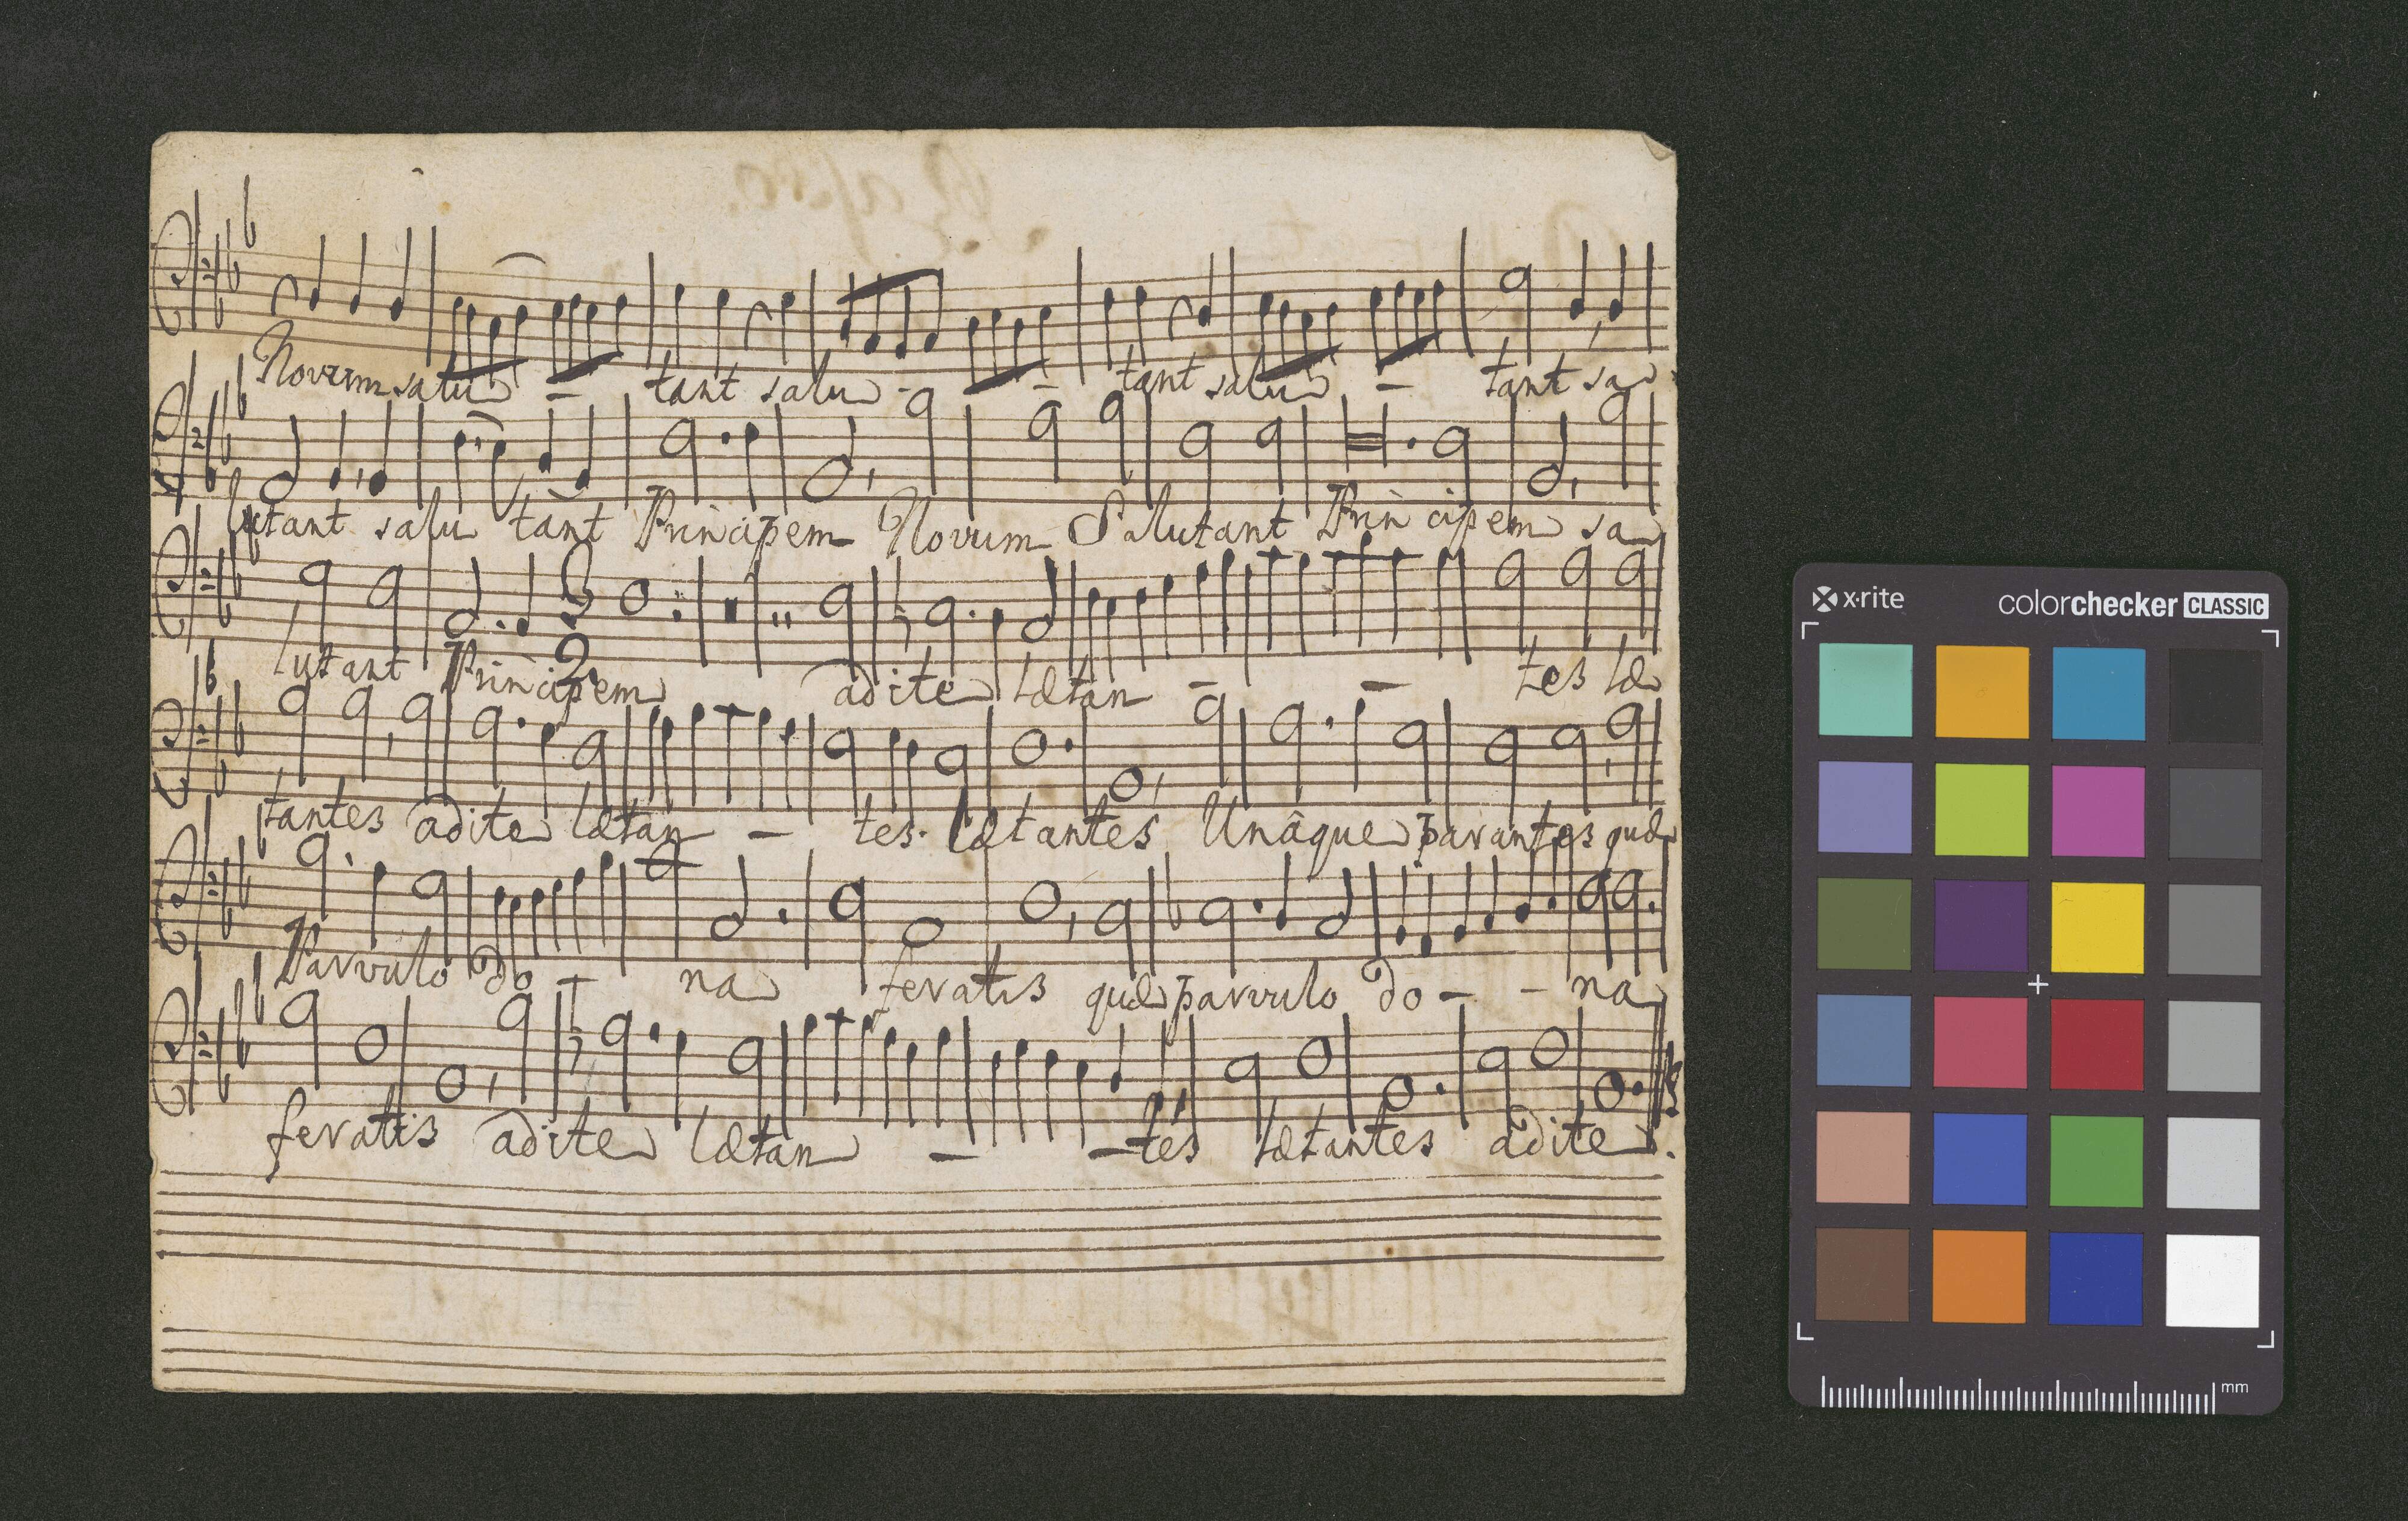 Novum salu - tant salu - - tant salu - tant sa
lutant salu tant Principem Novum Salutant Principem sa
lutant Principem adite lætan - - tes læ
tantes adite lætan - tes. lætantes Unâque parantes quæ
Parvulo do - na feratis quæ parvulo do - - na
feratis adite lætan - - tes lætantes adite.
x·rite
colorchecker CLASSIC
mm